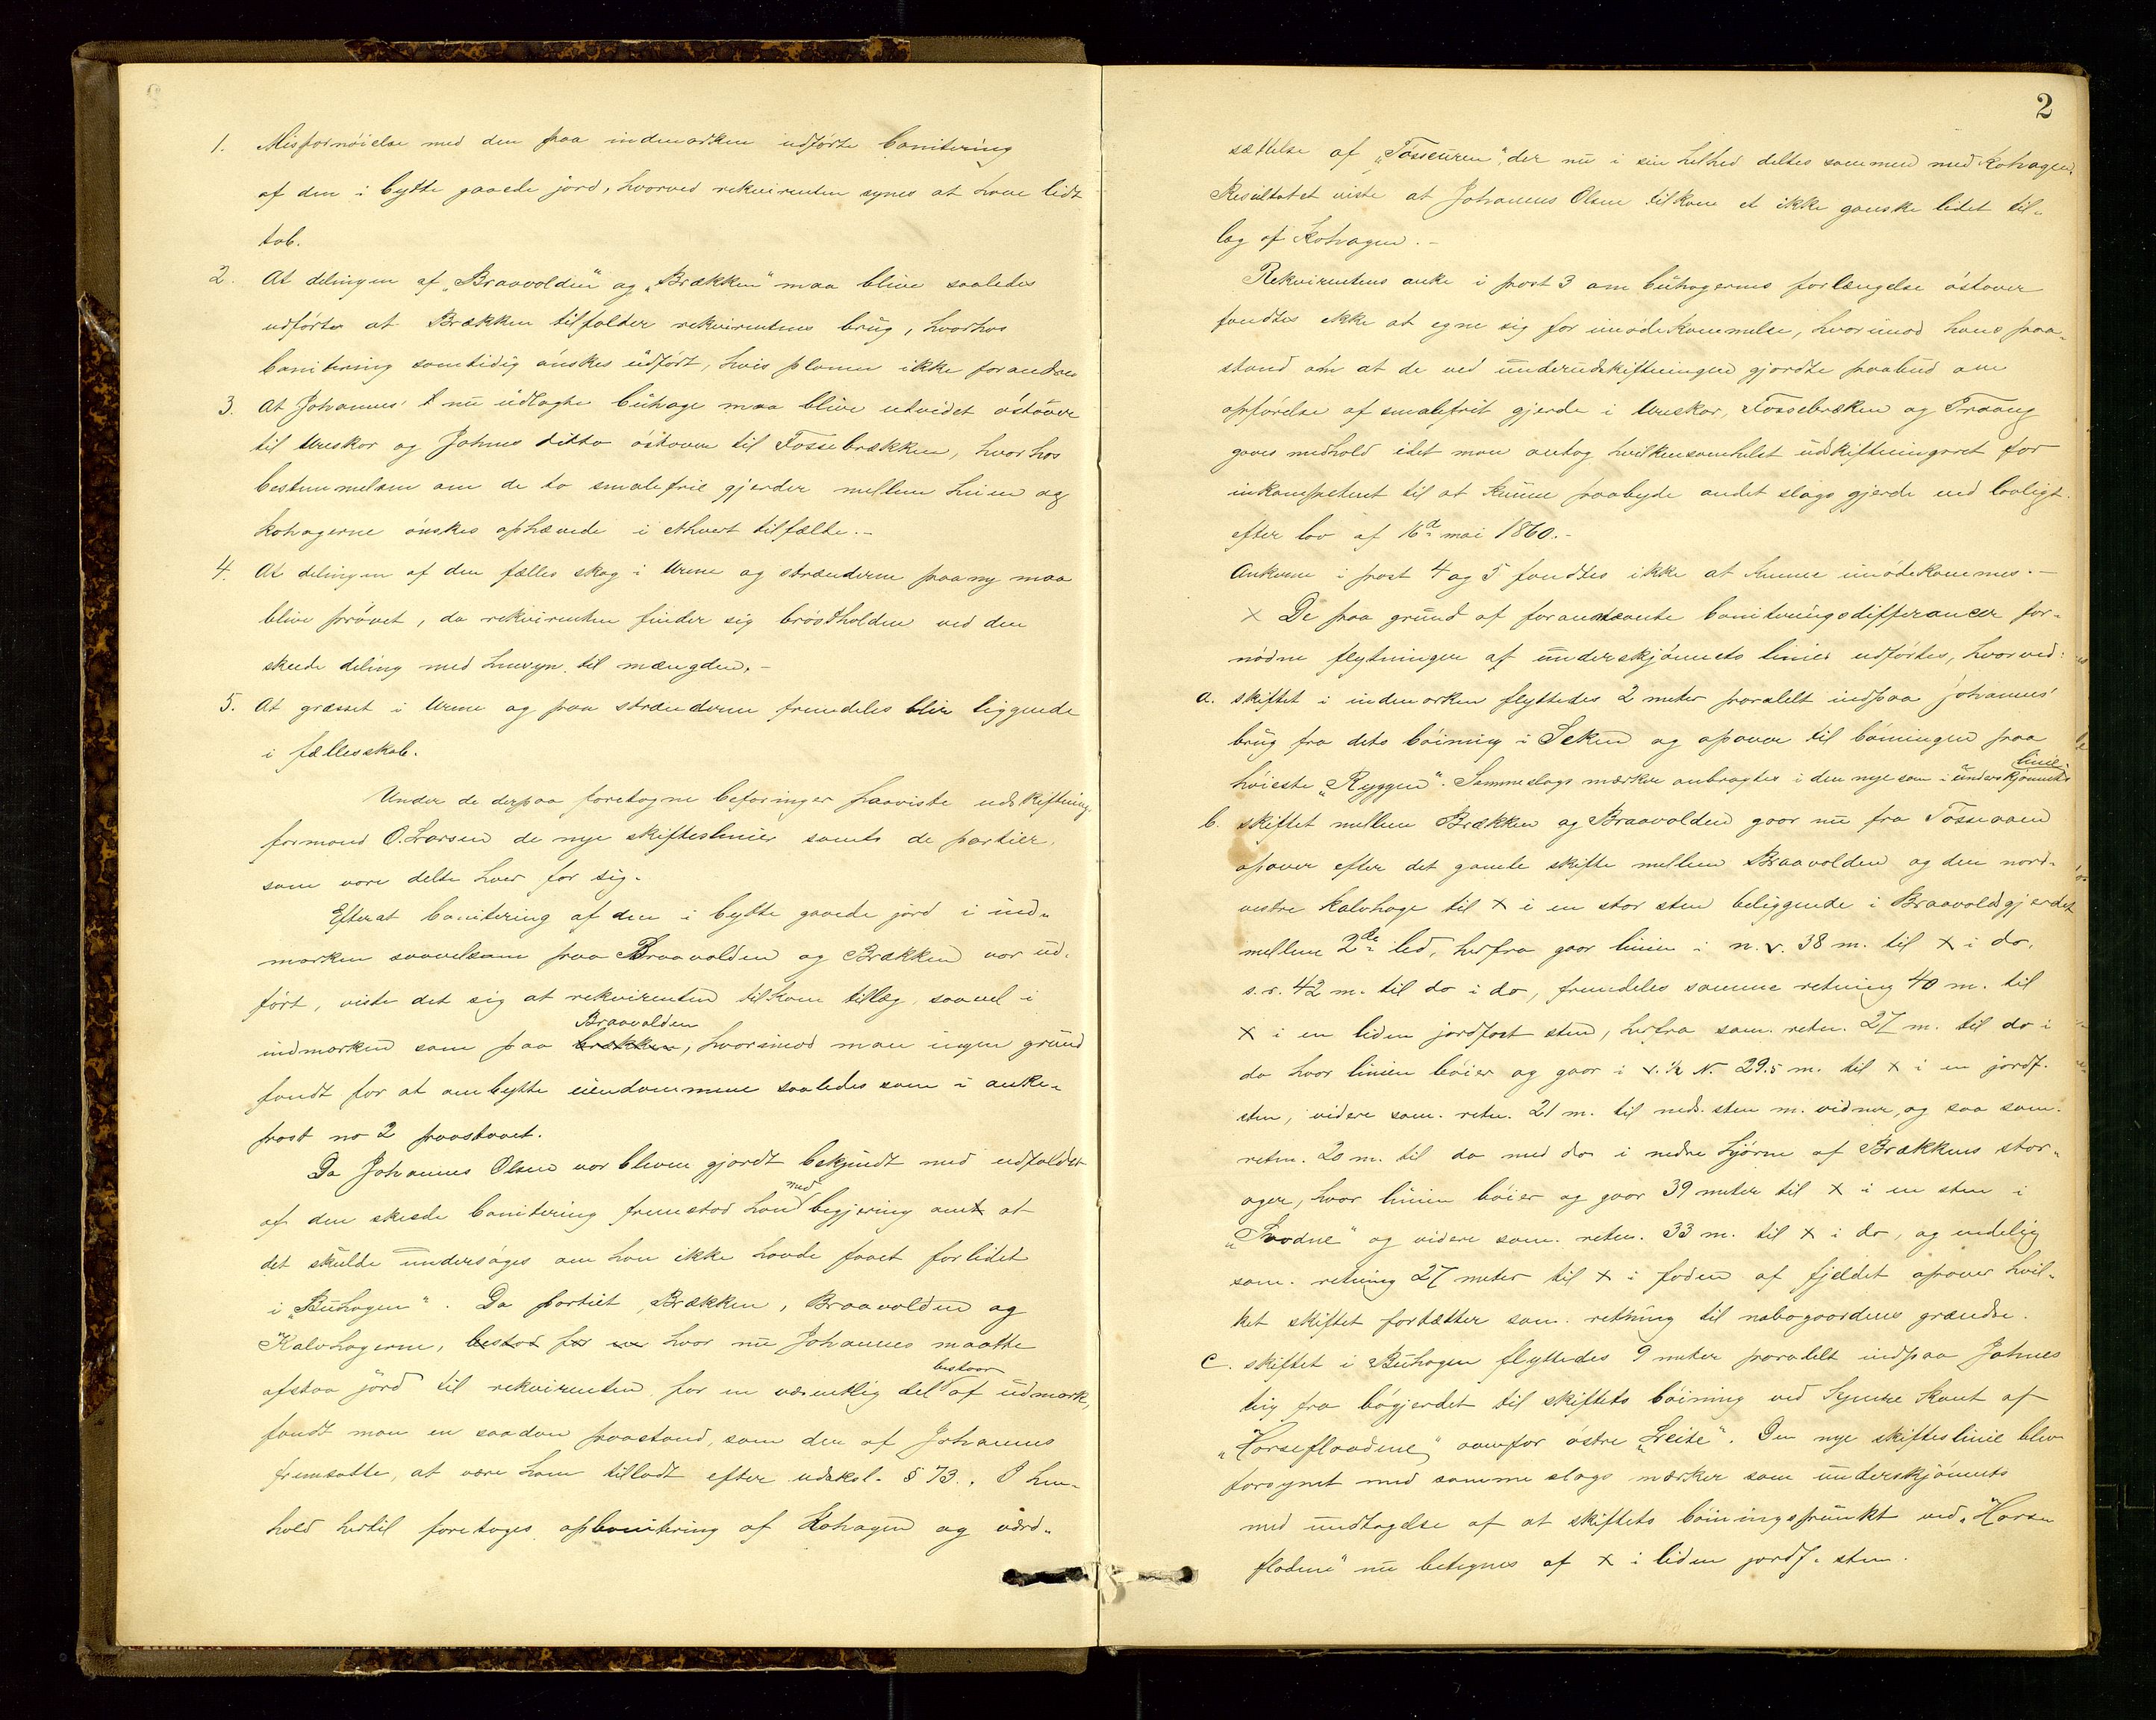 1. Misfornøielse med den paa indmarken udførte bonitering
af den i bytte gaaede jord, hvorved rekvirenten synes at have lidt
tab.
2. At delingen af „Braavolden" og „Brækken" maa blive saaledes
udført at Brækken tilfalder rekvirentens brug, hvorhos
bonitering samtidig ønskes udført, hvis planen ikke forandres
3. At Johannes' nu udlagte buhage maa blive utvidet østover
til Ureskar og Johnes ditto østover til Fossebrækken, hvorhos
bestemmelsen om de to smalefrie gjerder mellem hiin og
kohagerne ønskes ophævede i ethvert tilfælde.-
4. At delingen af den fælles skog i Urene og strænderne paany maa
blive prøvet, da rekvirenten finder sig brøstholden ved den
skeede deling med hensyn til mængden.-
5. At græsset i Urene og paa strænderne fremdeles blir liggende
i fællesskab.
Under de derpaa foretagne befaringer paaviste udskiftnings
formand O. Larsen de nye skifteslinier samt de partier,
som vare delte hver for sig.
Efterat bonitering af den i bytte gaaede jord i ind-
marken saavelsom paa Braavolden og Brækken var ud-
ført, viste det sig at rekvirenten tilkom tillæg, saavel i
indmarken som paa brækken, hvorimod man ingen grund
Braavolden
fandt for at ombytte eiendommene saaledes som i anke-
post no 2 paastaaet.
Da Johannes Olsen var bleven gjordt bekjendt med udfaldet
af den skeede bonitering fremstod han med begjering om at
det skulde undersøges om han ikke havde faaet forlidet
i „Buhagen". Da partiet Brækken, Braavolden og
Kalvhagerne, bestod for en hvor nu Johannes maatte
afstaa jord til rekvirenten for en væsentlig del bestaar af udmark,
fandt man en saadan paastand, som den af Johannes
fremsatte, at være ham tilladt efter udsksl. § 73. I hen-
hold hertil foretoges opbonitering af Kohagen og værd-
2
sættelse af „Fosseuren", der nu i sin helhed deltes sammen med Kohagen.
Resultatet viste at Johannes Olsen tilkom et ikke ganske lidet til-
læg af Kohagen.-
Rekvirentens anke i post 3 om buhagernes forlængelse østover
fandtes ikke at egne sig for imødekommelse, hvorimod hans paa-
stand om at de ved underudskiftningen gjordte paabud om
opførelse af smalefrit gjerde i Ureskar, Fossebrækken og Traang
gaves medhold idet man antog hvilkensomhelst udskiftningsret for
inkompetent til at kunne paabyde andet slags gjerde end lovligt
efter lov af 16de mai 1860.-
Ankerne i post 4 og 5 fandtes ikke at kunne imødekommes.-
x De paa grund af forannævnte boniteringsdifferancer for-
nødne flytninger af underskjønnets linier udførtes, hvorved:
a. skiftet i indmarken flyttedes 2 meter paralelt indpaa Johannes'
brug fra dets bøining i Seken og opover til bøiningen paa
høieste „Ryggen". Sammeslags mærker anbragtes i den nye som i underskjønnets
linie.
b. skiftet mellem Brækken og Braavolden gaar nu fra Fosseaaen
opover efter det gamle skifte mellem Braavolden og den nord-
vestre kalvhage til x i en stor sten beliggende i Braavoldsgjerdet
mellem 2de led, herfra gaar linien i n.v. 38 m. til x i do,
s.v. 42 m. til do i do, fremdeles samme retning 40 m. til
x i en liden jordfast sten, herfra sam. retn. 27 m. til do i
do hvor linien bøier og gaar i v. ½ N. 29.5 m. til x i en jordf.
sten, videre sam. retn. 21 m. til neds. sten m. vidner, og saa sam.
retn. 20 m. til do med do i nedre hjørne af Brækkens stor-
ager, hvor linien bøier og gaar 39 meter til x i en sten i
„Svodne" og videre sam. retn. 33 m. til x i do, og endelig
sam. retning 27 meter til x i foden af fjeldet opover hvil-
ket skiftet fortsætter sam. retning til nabogaardens grændse.
c. skiftet i Buhagen flyttedes 9 meter paralelt indpaa Johnes
teig fra bøgjerdet til skiftets bøining ved Synste kant af
„Horseflaadene" ovenfor østre „Leite". Den nye skifteslinie blev
forsynet med samme slags mærker som underskjønnets
med undtagelse af at skiftets bøiningspunkt ved „Horse
fladene" nu betegnes af x i liden jordf. sten.